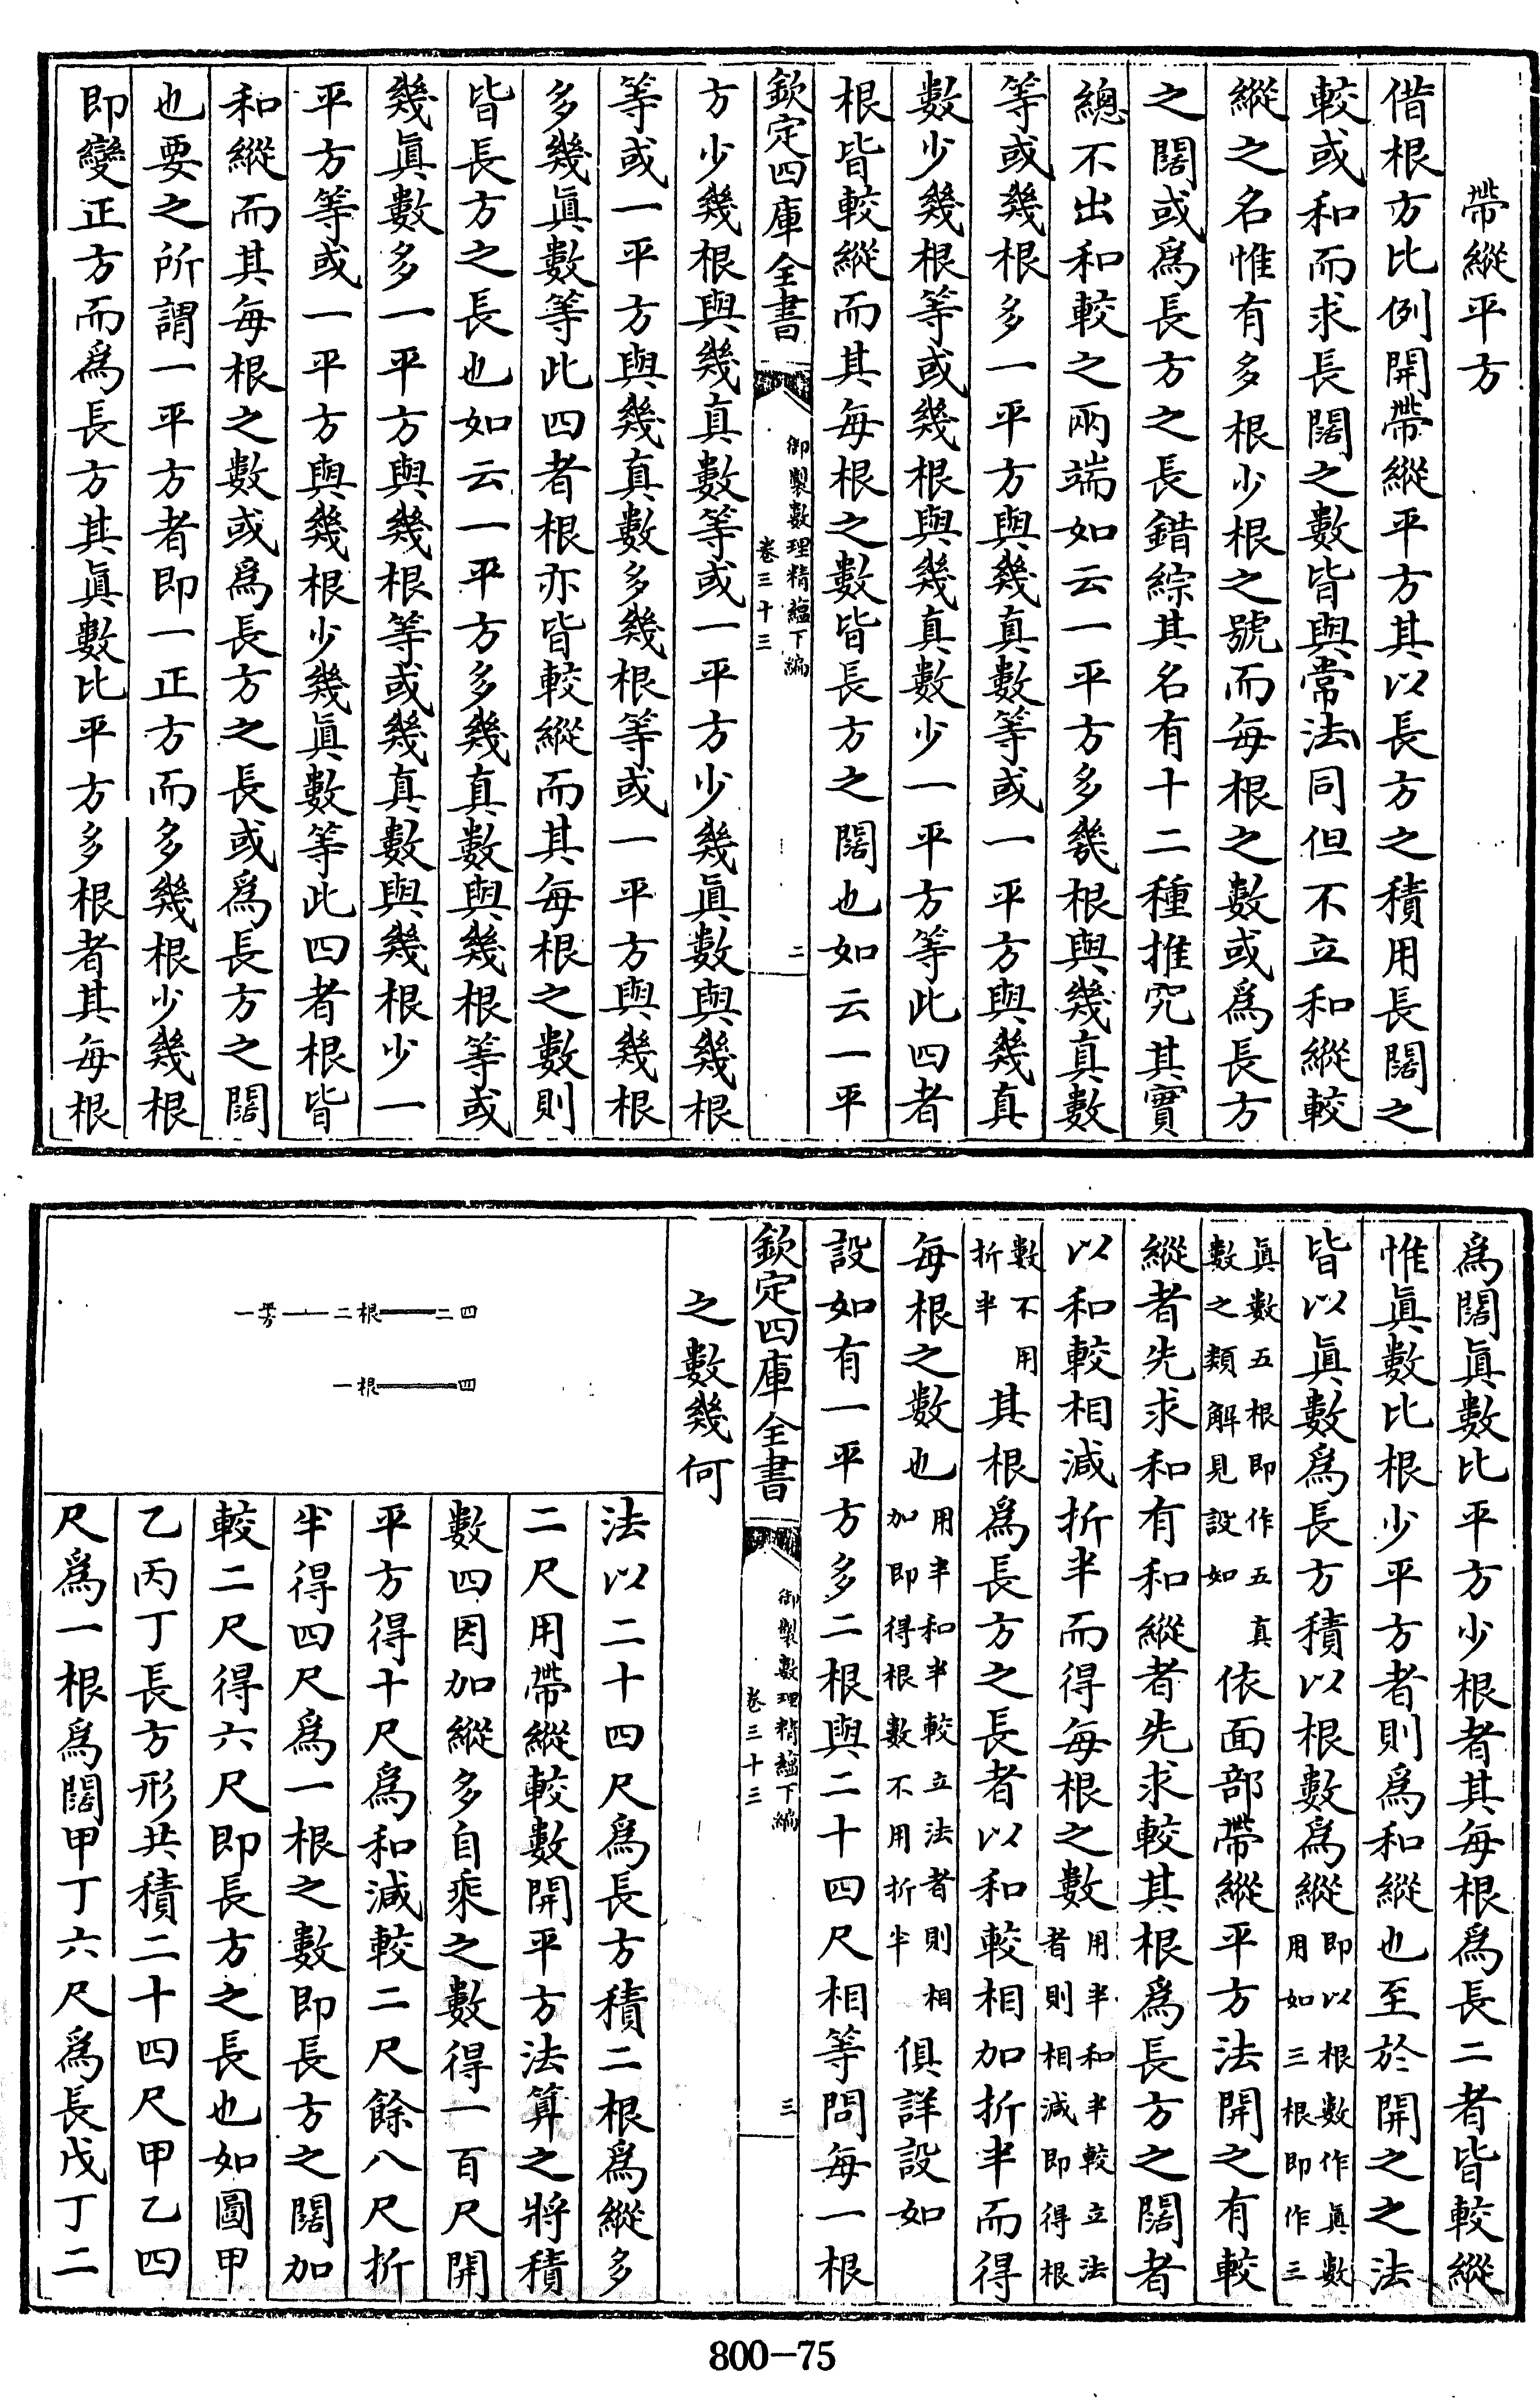 帶縱平方
借根方比例開帶縱平方其以長方之積用長闊之
較或和而求長闊之數皆與常法同但不立和縱較
縱之名惟有多根少根之號而每根之數或為長方
之闊或為長方之長錯綜其名有十二種推究其實
總不出和較之兩端如云一平方多幾根與幾真數
等或幾根多一平方與幾真數等或一平方與幾真
數少幾根等或幾根與幾真數少一平方等此四者
根皆較縱而其每根之數皆長方之闊也如云一平
欽定四庫全書
御製數理精蘊下編
卷三十三
二
方少幾根與幾真數等或一平方少幾眞數與幾根
等或一平方與幾真數多幾根等或一平方與幾根
多幾眞數等此四者根亦皆較縱而其每根之數則
皆長方之長也如云一平方多幾真數與幾根等或
幾眞數多一平方與幾根等或幾真數與幾根少一
平方等或一平方與幾根少幾眞數等此四者根皆
和縱而其每根之數或為長方之長或為長方之闊
也要之所謂一平方者即一正方而多幾根少幾根
即變正方而為長方其眞數比平方多根者其每根
為闊眞數比平方少根者其每根為長二者皆較縱
惟眞數比根少平方者則為和縱也至於開之之法
皆以眞數為長方積以根數為縱即以根數作眞數
用如三根即作三
眞數五根即作五真
數之類解見設如依面部帶縱平方法開之有較
縱者先求和有和縱者先求較其根為長方之闊者
以和較相減折半而得每根之數用半和半較立法
者則相減即得根
數不用
折半其根為長方之長者以和較相加折半而得
每根之數也用半和半較立法者則相
加即得根數不用折半俱詳設如
設如有一平方多二根與二十四尺相等問每一根
欽定四庫全書
御製數理精蘊下編
卷三十三
三
之數幾何
一方一二根二四
一根四
法以二十四尺為長方積二根為縱多
二尺用帶縱較數開平方法算之將積
數四因加縱多自乘之數得一百尺開
平方得十尺為和減較二尺餘八尺折
半得四尺為一根之數即長方之闊加
較二尺得六尺即長方之長也如圖甲
乙丙丁長方形共積二十四尺甲乙四
尺為一根為闊甲丁六尺為長戊丁二
800-75